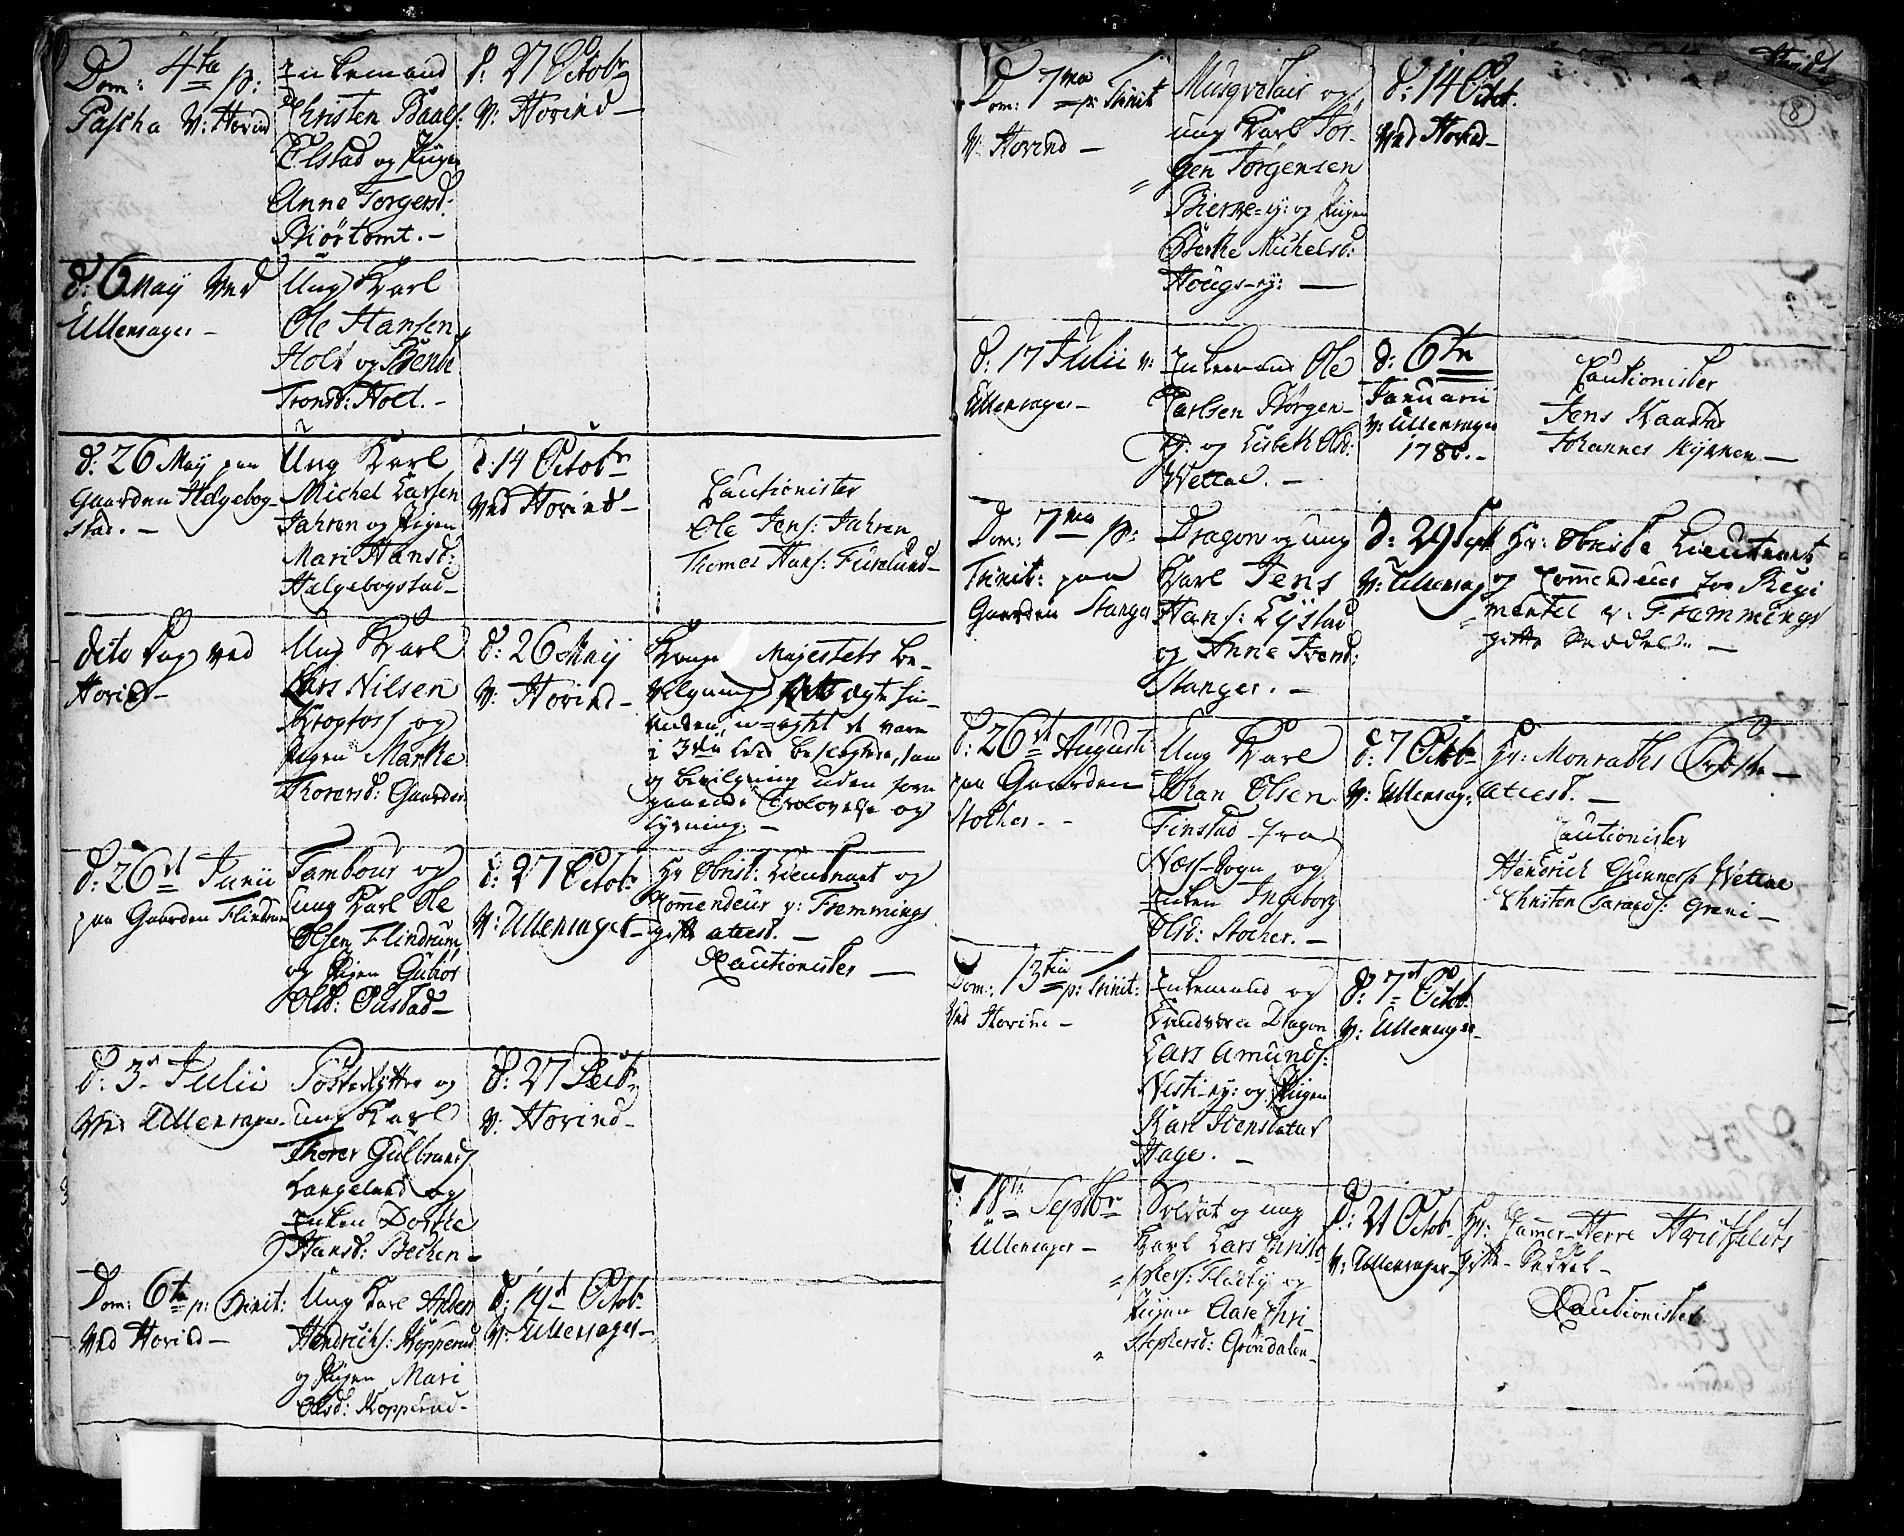 Dom: 4ta p:
Pascha V: Hovind
Enkemand
Christen Paals:
Elstad og Pigen
Anne Torgersd:
Biørtomt. –
d: 27 Octobr
V: Hovind –
d: 6 May ved
Ullensager –
Ung Karl
Ole Hansen
Holt og Berthe
Tronsd: Holt. –
d: 26 May paa
Gaarden Helgebog-
stad. –
Ung Karl
Michel Larsen
Jahren og Pigen
Mari Hansd:
Helgebogstad –
d: 14 Octobr
ved Hovind –
Cautionister
Ole Jens: Jahren
Thomes Hans: Furulund –
dito Dag ved
Hovind –
Ung Karl
Lars Nilsen
Krogfos og
Pigen Marthe
Thorersd: Gaarder
d: 26 May
V: Hovind –
Kongl Majestets be-
vilgning
i 3die Led beslegtede, sam
og bevilgning uden fore
gaaende Trolovelse og
Lysning. –
d: 26st Junii
paa Gaarden Flindrum
Tambour og
ung Karl Ole
Olsen Flindrum
og Pigen Gubior
Olsd: Oustad –
d: 27 Octobr
V: Ullensager –
Hr Obrist: Lieutnant og
Commendeur v: Fremmings
gifte attest. –
Cautionister –
d: 3d Julii
ved Ullensager
og
ung Karl
Thorer Gulbrands
Langeland og
Enken Dorthe
Hansd: Bechen –
d: 27 Decbr
V: Hovind –
Dom: 6ta p: Trinit:
ved Hovind –
Ung Karl Anders
Hendrichs: Kopperud
og Pigen Mari
Olsd: Kopperud –
d: 19d Octobr
V: Ullensager –
8
Dom: 7ma p: Trinit
V: Hovind –
Musqvetair og
ung Karl Jør-
gen Jørgensen
Bierke-ej: og Pigen
Berthe Michelsd:
Hougs-ej: –
d: 14 Octbr.
ved Hovind –
d: 17 Julii v:
Ullensager –
Enkemand Ole
Carlsen Borgen-
ej: og Lisbeth Olsd:
Wettal. –
d: 6te
Januarii
V: Ullensager
1780. –
Cautionister
Jens Kaastad
Johannes Kynnen –
Dom: 7ma p:
Trinit: paa
Gaarden Stanger
Dragon og ung
Karl Jens
Hans: Lystad
og Anne Svend:
Stanger. –
d: 29 Sept
V: Ullensag
Hr: Obriste Lieutnant
og Commendeur for Regi
mentet v. Fremmings
gifte Seddel. –
d: 26st Augusti
paa Gaarden
Stocher. –
Ung Karl
Johan Olsen
Finstad fra
Næs-Sogn og
Enken Ingeborg
Olsd: Stocher. –
d: 7 Octobr
V: Ullensag:
Hr: Monraths
attest. –
Cautionister
Hendrich Gunners: Wettal
Christen Taralds: Greni –
Dom: 13tia p: Trinit:
ved Hovind –
Enkemand og
Dragon
Lars Amunds:
ej: og Pigen
Kari
Hage. –
d: 7d Octob:
V: Ullensager –
18de Septbr
Ullensager –
Soldat og ung
Karl Lars Christo-
phers: Fladby og
Pigen Aase Chri-
stophersd: Grøndalen –
d: 21 Octob
V: Ullensager –
Hr: Cammer-Herre
gifte-Seddel –
Cautionister